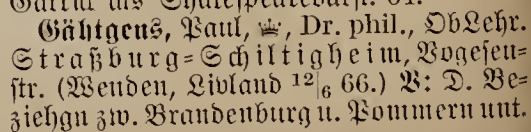 Gähtgens, Paul, ♕, Dr. phil., ObLehr.
Straßburg=Schiltigheim, Vogesen=
str. (Wenden, Livland 12/6 66.) V: D. Be=
ziehgn zw. Brandenburg u. Pommern unt.